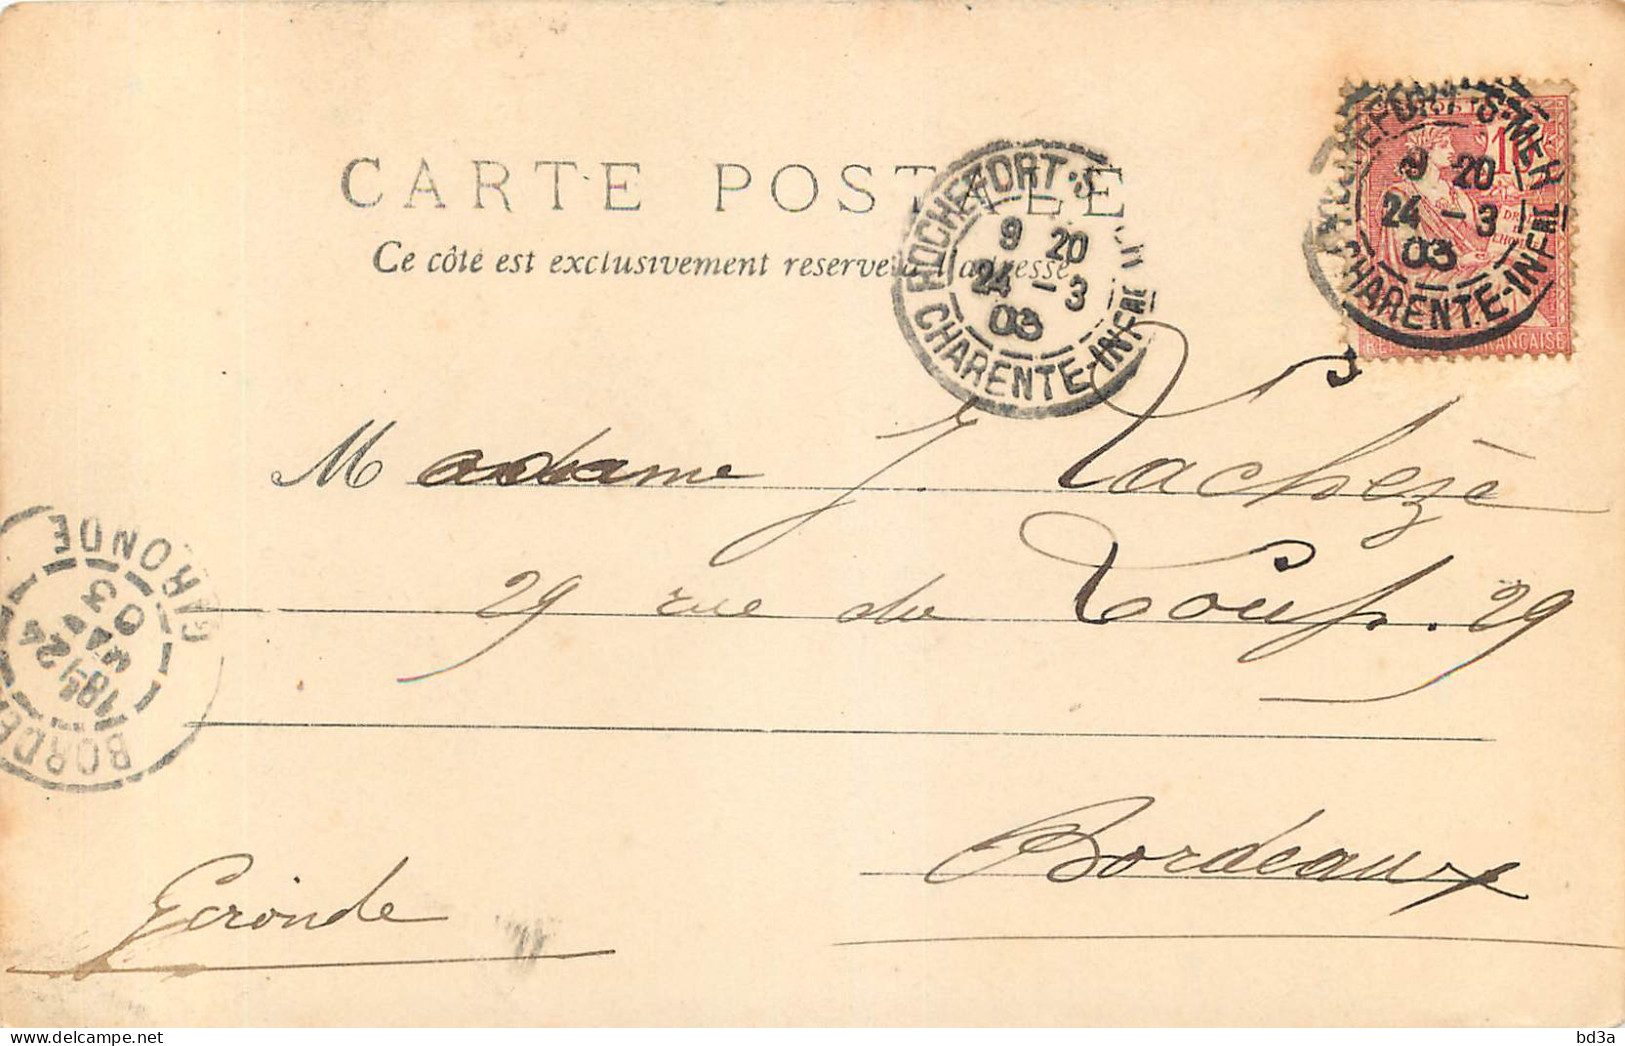 CARTE POSTALE
Ce côté est exclusivement réservé à l'adresse
ROCHEFORT-S-MER
9 20
24 - 3
03
CHARENTE-INFRE
ROCHEFORT-S-MER
9 20
24 - 3
03
CHARENTE-INFRE
10
DROITS
DE
L'HOMME
REPUBLIQUE FRANÇAISE
Madame J. Lachèze
29 rue du Loup. 29
Bordeaux
Gironde
BORDEAUX
18 24
MARS
03
GIRONDE
bd3a